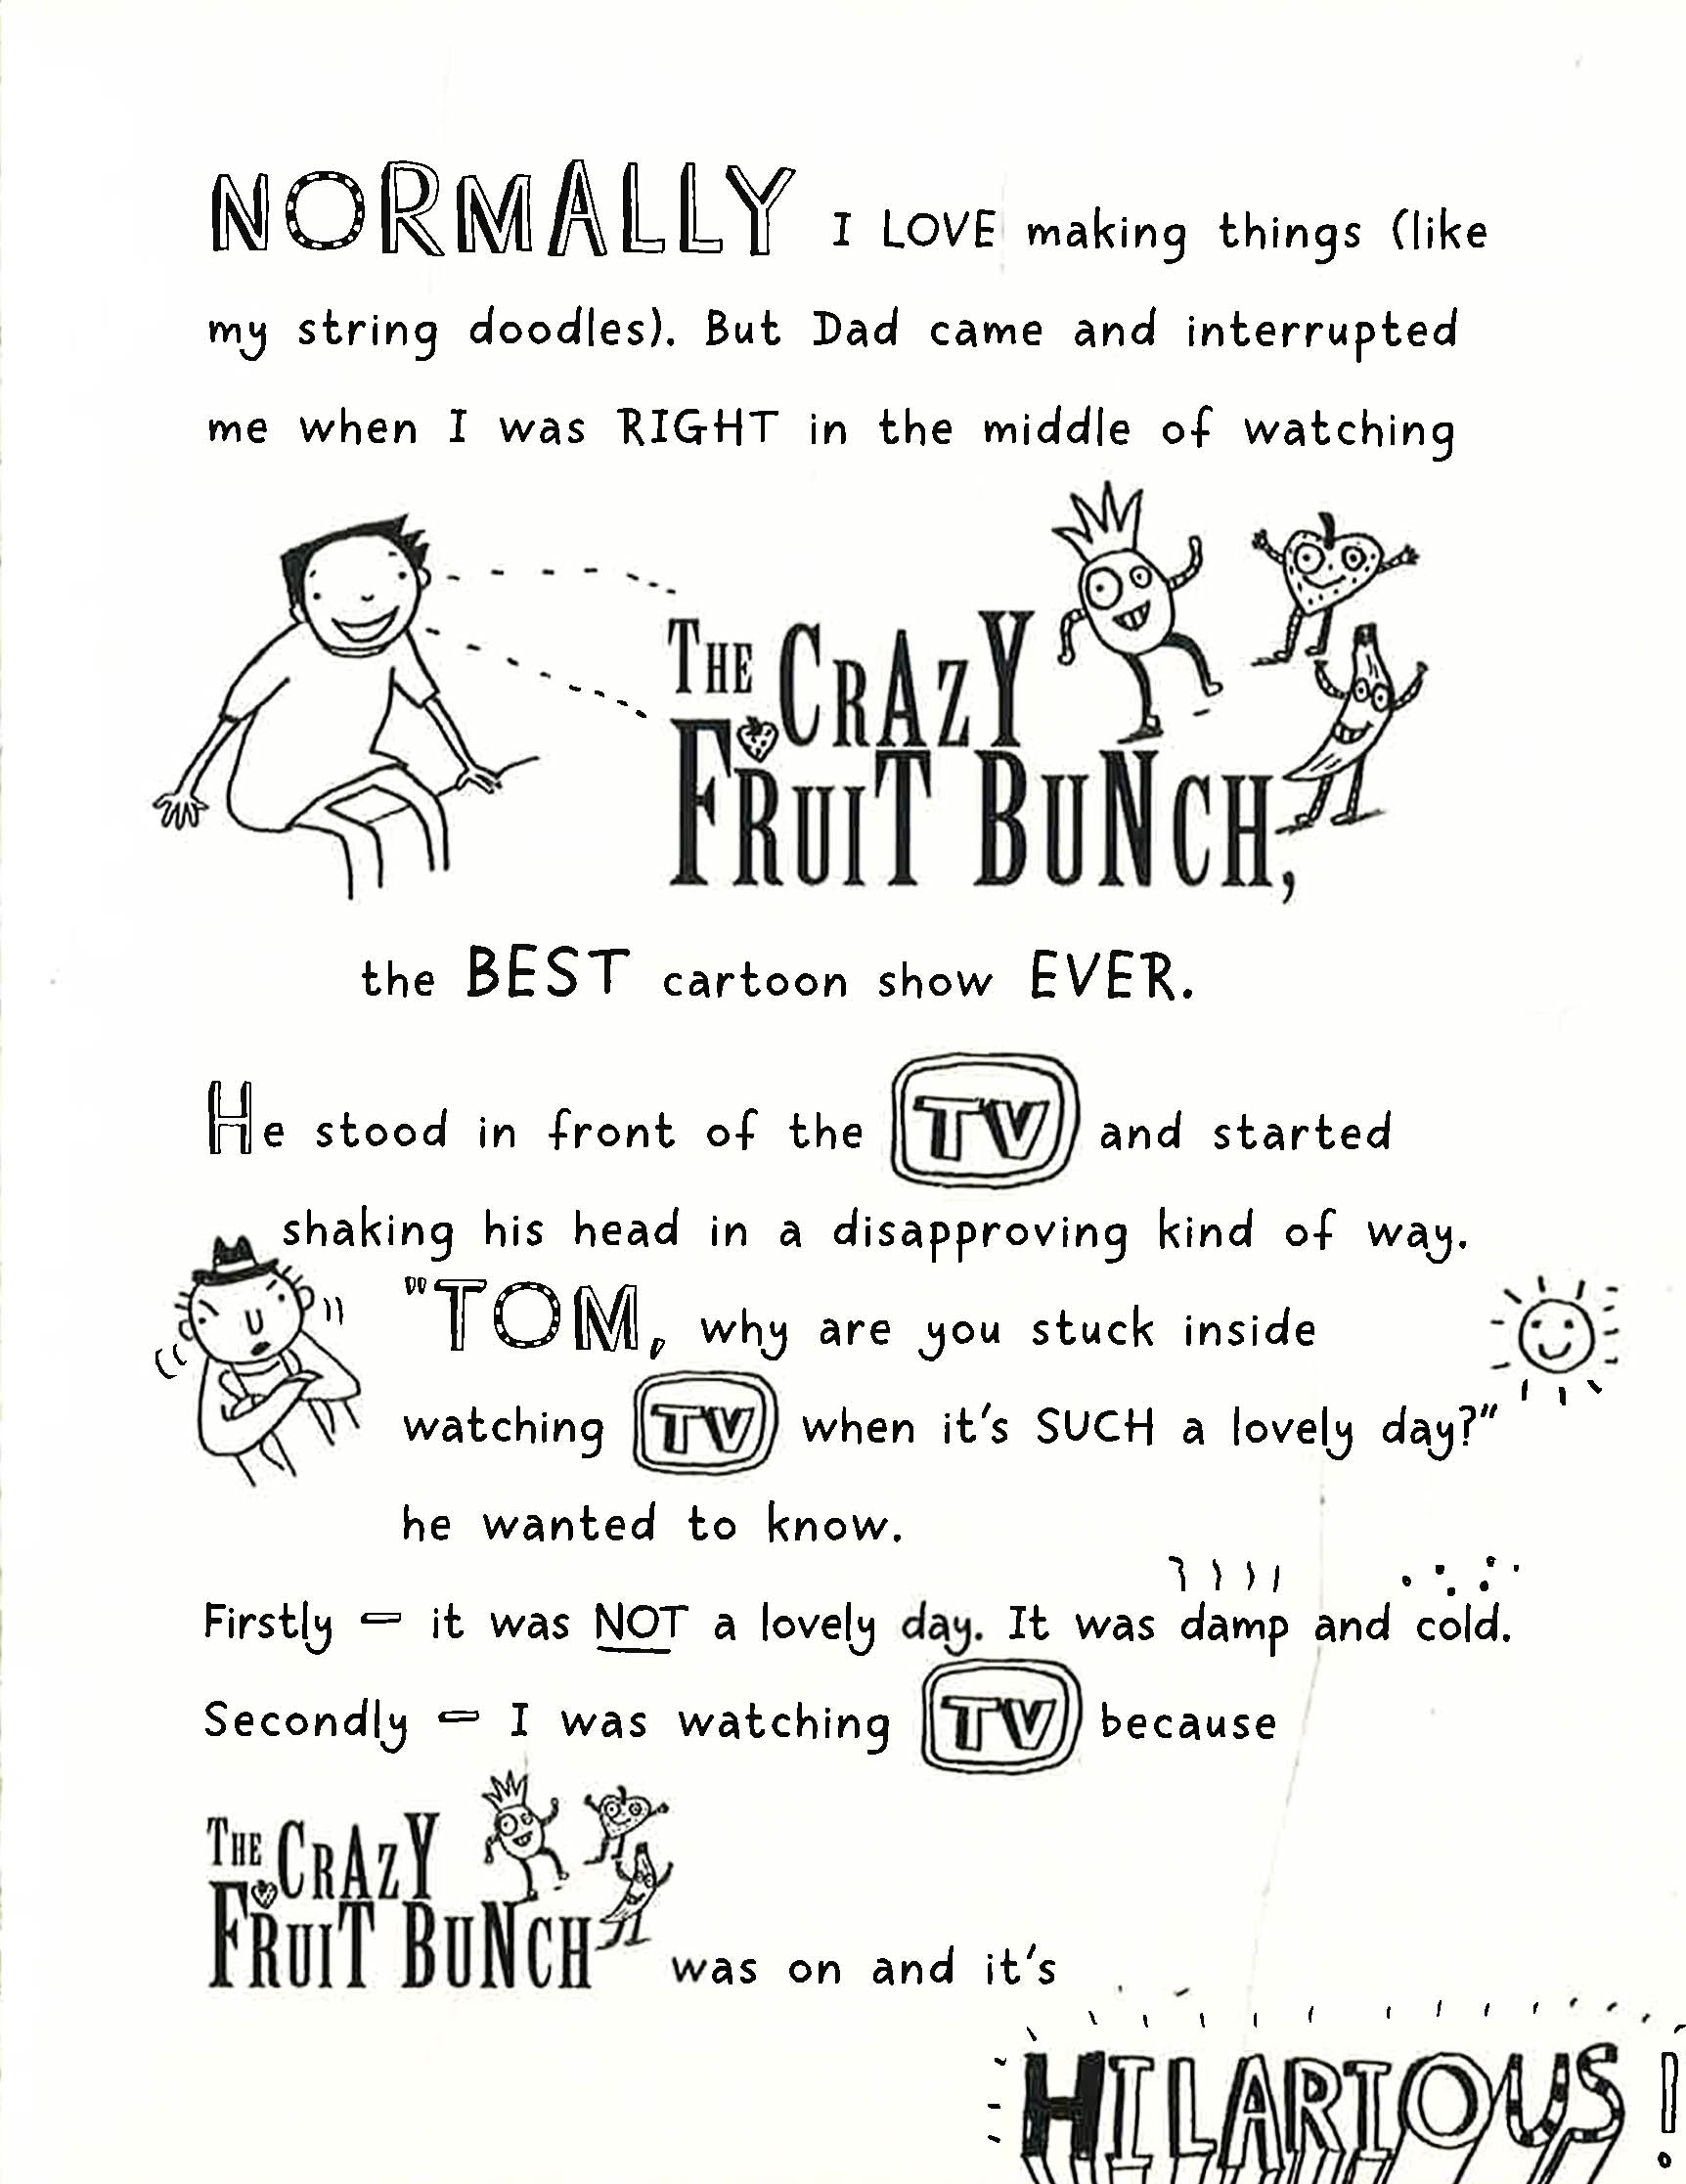 NORMALLY I LOVE making things (like
my string doodles). But Dad came and interrupted
me when I was RIGHT in the middle of watching
THE CRAZY
FRUIT BUNCH,
the BEST cartoon show EVER.
He stood in front of the TV and started
shaking his head in a disapproving kind of way.
"TOM, why are you stuck inside
watching TV when it's SUCH a lovely day?"
he wanted to know.
Firstly - it was NOT a lovely day. It was damp and cold.
Secondly - I was watching TV because
THE CRAZY
FRUIT BUNCH was on and it's
HILARIOUS!